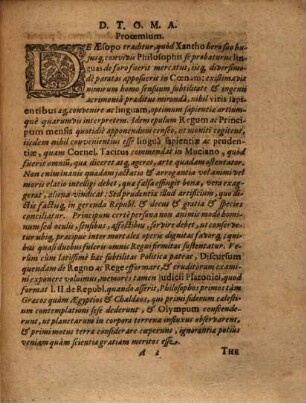 D. T. O. M. A.
Prooemium.
DE Æsopo traditur, quòd Xantho hero suo hu-
jusq; convivis Philosophis se probaturus lin-
guas de foro fuerit mercatus, iisq; diversimo-
dè paratas apposuerit in Cœnam: existimavit
nimirum homo sensuum subtilitate & ingenii
acrimoniâ præditus mirandâ, nihil vitâ sapi-
entibus æq; convenire ac linguam, optimum sapientiæ artium-
què quarumvis interpretem. Idem epulum Regum ac Princi-
pum mensis quotidiè apponendum censeo, ut moniti cogitent,
iisdem nihil convenientius esse linguâ sapientiæ ac prudentiæ,
quam Cornel. Tacitus commendat in Muciano, quòd
fuerit omniũ, quæ diceret atq; ageret, arte quadam ostentator.
Non enim inanis quædam jactatio & arrogantia vel animi vel
moris elatio intelligi debet, quæ facilè assingit bona, vera exag-
gerat, aliena vindicat: Sed prudentia illud artificium, quo di-
ctis factisq; in gerenda Republ. & decus & gratia & species
conciliatur. Principum certè persona non animis modò homi-
num sed oculis, sensibus, affectibus, servire debet, ut conser-
vetur ubiq; præcipuè inter mortales opera dignitatis favorq;
quibus quasi duobus fulcris omnis Regni firmitas sustentatur. Ve-
rùm cùm latissimè hæc subtilitas Politica pateat, Discursum
quendam de Regno ac Rege efformare & eruditorum exami-
ni exponere volumus, memores tamen judicii Platonici, quod
format l. II de Republ. quando asserit, Philosophos primos tàm
Græcos quàm Ægyptios & Chaldæos, qui primi siderum cælesti-
um contemplationi sese dederunt, & Olympum conscende-
runt, ut planetarum in corpora terrena influxus observarent,
& primi motus terræ considerare cœperunt, ignorantiæ potius
veniam quàm scientiæ gratiam meritos esse.
A 2 THE